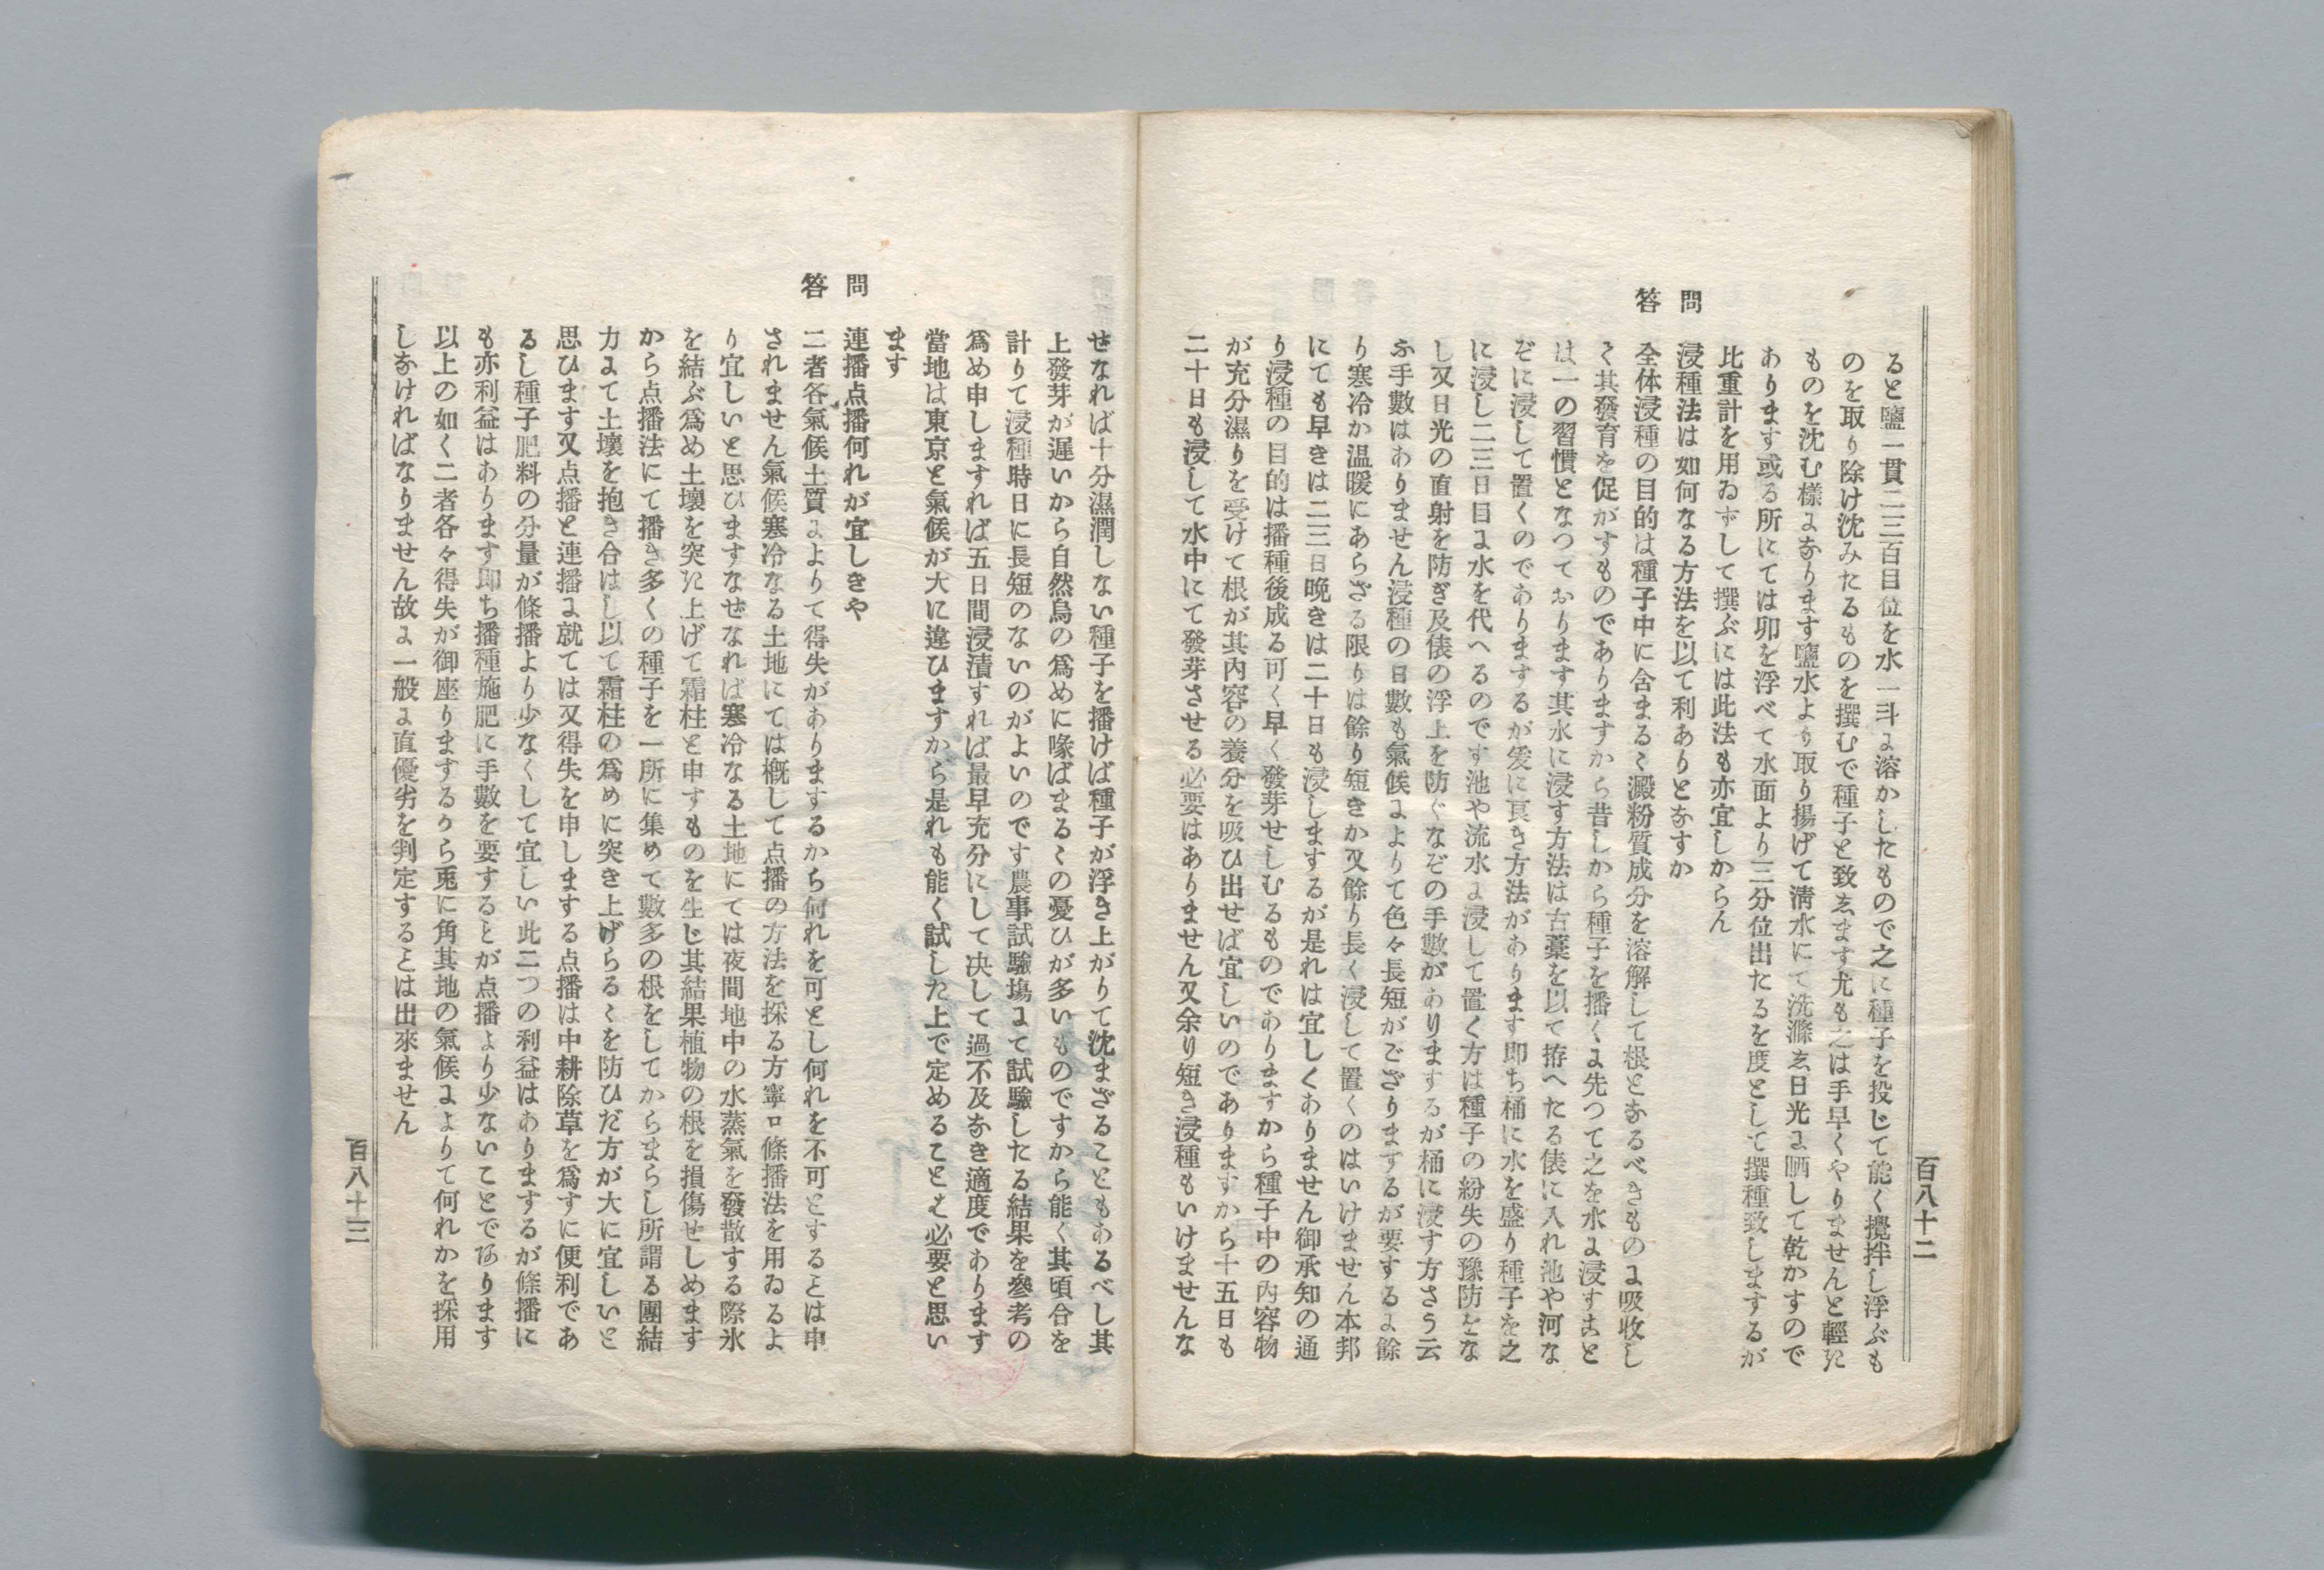 百八十二
ると鹽一貫二三百目位を水一斗に溶かしたもので之に種子を投じて能く攪拌し浮ぶも
のを取り除け沈みたるものを撰むで種子と致ゑます尤も之は手早くやりませんと輕た
ものを沈む樣になります鹽水より取り揚げて淸水にて洗滌ゑ日光に晒して乾かすので
あります或る所にては卯を浮べて水面より三分位出たるを度として撰種致しまするが
比重計を用ゐずして撰ぶには此法も亦宜しからん
問 浸種法は如何なる方法を以て利ありとなすか
答 全体浸種の目的は種子中に含まるゝ澱粉質成分を溶解して根となるべきものに吸收し
く其發育を促がすものでありますから昔しから種子を播くに先つて之を水に浸すこと
は一の習慣となつております其水に浸す方法は古藁を以て拵へたる俵に入れ池や河な
ぞに浸して置くのでありまするが爰に良き方法があります即ち桶に水を盛り種子を之
に浸し二三日目に水を代へるのです池や流水に浸して置く方は種子の紛失の豫防をな
し又日光の直射を防ぎ及俵の浮上を防ぐなぞの手數がありまするが桶に浸す方さう云
ふ手數はありません浸種の日數も氣候によりて色々長短がござりまするが要するに餘
り寒冷か温暖にあらざる限りは餘り短きか又餘り長く浸して置くのはいけません本邦
にても早きは二三日晩きは二十日も浸しまするが是れは宜しくありません御承知の通
り浸種の目的は播種後成る可く早く發芽せしむるものでありますから種子中の內容物
が充分濕りを受けて根が其內容の養分を吸ひ出せば宜しいのでありますから十五日も
二十日も浸して水中にて發芽させる必要はありません又余り短き浸種もいけませんな
せなれば十分濕潤しない種子を播けば種子が浮き上がりて沈まざることもあるべし其
上發芽が遲いから自然鳥の爲めに喙ばまるゝの憂ひが多いものですから能く其頃合を
計りて浸種時日に長短のないのがよいのです農事試驗塲にて試驗したる結果を參考の
爲め申しますれば五日間浸漬すれば最早充分にして决して過不及なき適度であります
當地は東京と氣候が大に違ひますから是れも能く試した上で定めることも必要と思い
ます
問 連播点播何れが宜しきや
答 二者各氣候土質によりて得失がありまするから何れを可とし何れを不可とするとは申
されません氣候寒冷なる土地にては槪して点播の方法を採る方寧ロ條播法を用ゐるよ
り宜しいと思ひますなぜなれば寒冷なる土地にては夜間地中の水蒸氣を發散する際氷
を結ぶ爲め土壤を突た上げて霜柱と申すものを生じ其結果植物の根を損傷せしめます
から点播法にて播き多くの種子を一所に集めて數多の根をしてからまらし所謂る團結
力にて土壤を抱き合はし以て霜柱の爲めに突き上げらるゝを防ひだ方が大に宜しいと
思ひます又点播と連播に就ては又得失を申しまする点播は中耕除草を爲すに便利であ
るし種子肥料の分量が條播より少なくして宜しい此二つの利益はありまするが條播に
も亦利益はあります即ち播種施肥に手數を要するとが点播より少ないことであります
以上の如く二者各々得失が御座りまするから兎に角其地の氣候によりて何れかを採用
しなければなりません故に一般に直優劣を判定するとは出來ません
百八十三